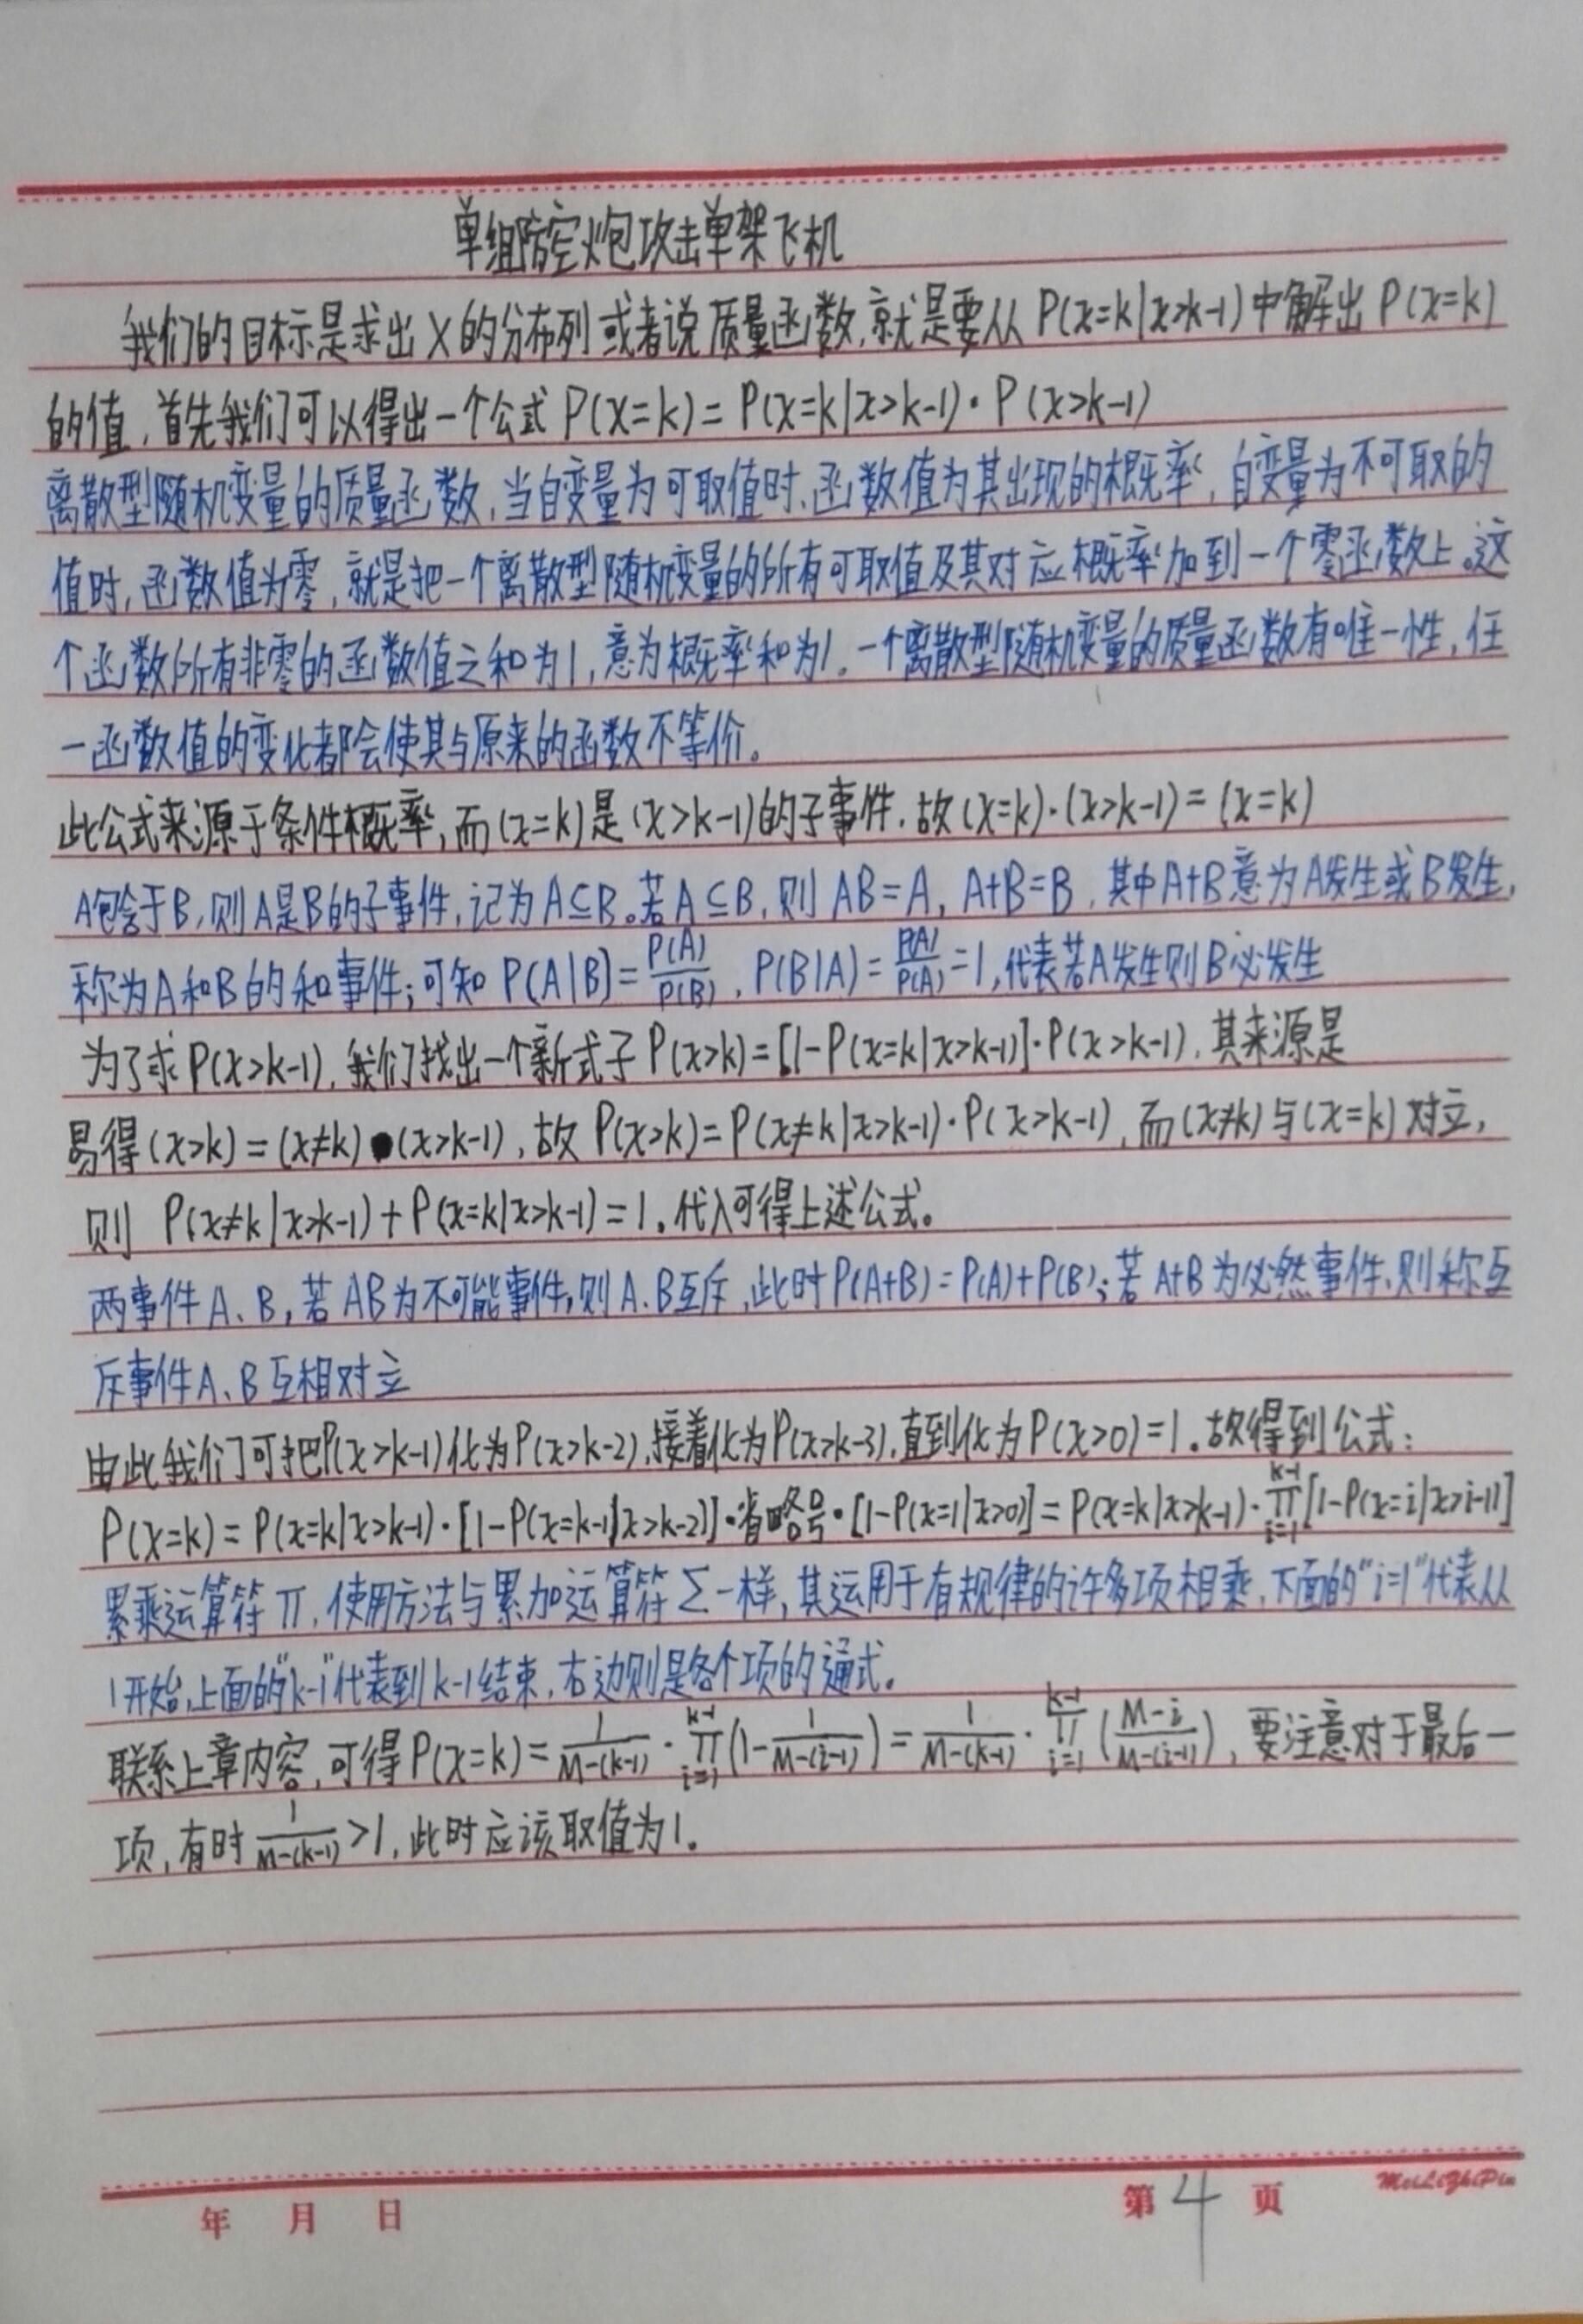 单组防空炮攻击单架飞机
我们的目标是求出X的分布列或者说质量函数,就是要从P(x=k|x>k-1)中解出P(x=k)
的值,首先我们可以得出一个公式P(X=k)=P(x=k|x>k-1)·P(x>k-1)
离散型随机变量的质量函数,当自变量为可取值时,函数值为其出现的概率,自变量为不可取的
值时,函数值为零,就是把一个离散型随机变量的所有可取值及其对应概率加到一个零函数上。这
个函数所有非零的函数值之和为1,意为概率和为1。一个离散型随机变量的质量函数有唯一性,任
一函数值的变化都会使其与原来的函数不等价。
此公式来源于条件概率,而(x=k)是(x>k-1)的子事件,故(x=k)·(x>k-1)=(x=k)
A包含于B,则A是B的子事件,记为A⊆B。若A⊆B,则AB=A,A+B=B,其中A+B意为A发生或B发生,
称为A和B的和事件;可知P(A|B)=P(A)/P(B),P(B|A)=P(A)/P(A)=1,代表若A发生则B必发生
为了求P(x>k-1),我们找出一个新式子P(x>k)=[1-P(x=k|x>k-1)]·P(x>k-1),其来源是
易得(x>k)=(x≠k)·(x>k-1),故P(x>k)=P(x≠k|x>k-1)·P(x>k-1),而(x≠k)与(x=k)对立,
则P(x≠k|x>k-1)+P(x=k|x>k-1)=1。代入可得上述公式。
两事件A、B,若AB为不可能事件,则A、B互斥,此时P(A+B)=P(A)+P(B);若A+B为必然事件,则称互
斥事件A、B互相对立
由此我们可把P(x>k-1)化为P(x>k-2),接着化为P(x>k-3),直到化为P(x>0)=1。故得到公式:
P(x=k)=P(x=k|x>k-1)·[1-P(x=k-1|x>k-2)]·省略号·[1-P(x=1|x>0)]=P(x=k|x>k-1)·∏_{i=1}^{k-1}[1-P(x=i|x>i-1)]
累乘运算符∏,使用方法与累加运算符∑一样,其运用于有规律的许多项相乘,下面的"i=1"代表从
1开始,上面的"k-1"代表到k-1结束,右边则是各个项的通式。
联系上章内容,可得P(x=k)=1/(M-(k-1))·∏_{i=1}^{k-1}(1-1/(M-(i-1)))=1/(M-(k-1))·∏_{i=1}^{k-1}((M-i)/(M-(i-1))),要注意对于最后一
项,有时1/(M-(k-1))>1,此时应该取值为1。
年 月 日 第4页 MeiLiZhiPin